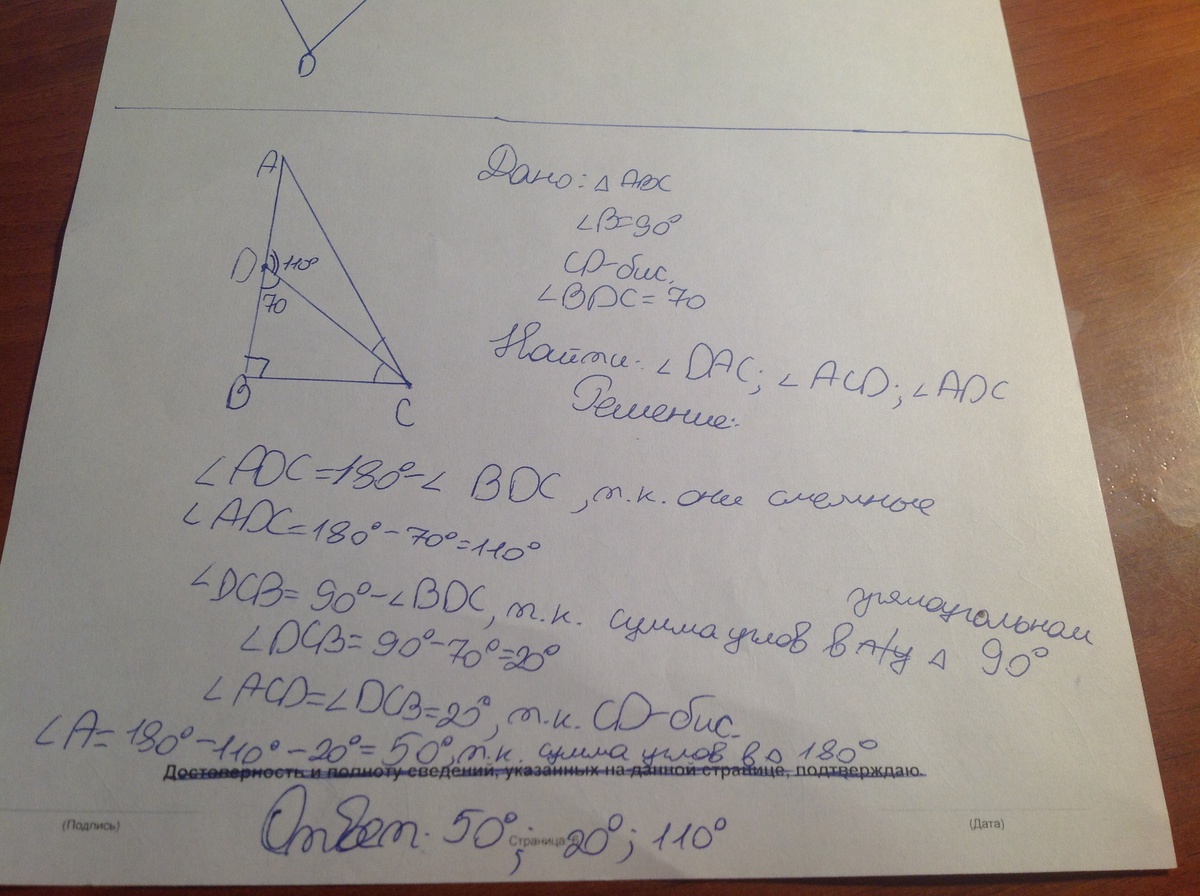 D
A
D 110°
70
B
C
Дано: △ ABC
∠B=90°
CD-бис.
∠BDC = 70
Найти: ∠ DAC; ∠ ACD; ∠ ADC
Решение:
∠ADC=180°-∠ BDC, т.к. они смежные
∠ADC=180°-70°=110°
прямоугольном
∠DCB= 90°-∠BDC, т.к. сумма углов в △ 90°
∠DCB= 90°-70°=20°
∠ACD=∠DCB=20°, т.к. CD-бис.
∠A= 180°-110°-20°= 50°, т.к. сумма углов в △ 180°
Достоверность и полноту сведений, указанных на данной странице, подтверждаю.
Ответ. 50°; 20°; 110°
(Подпись) Страница (Дата)